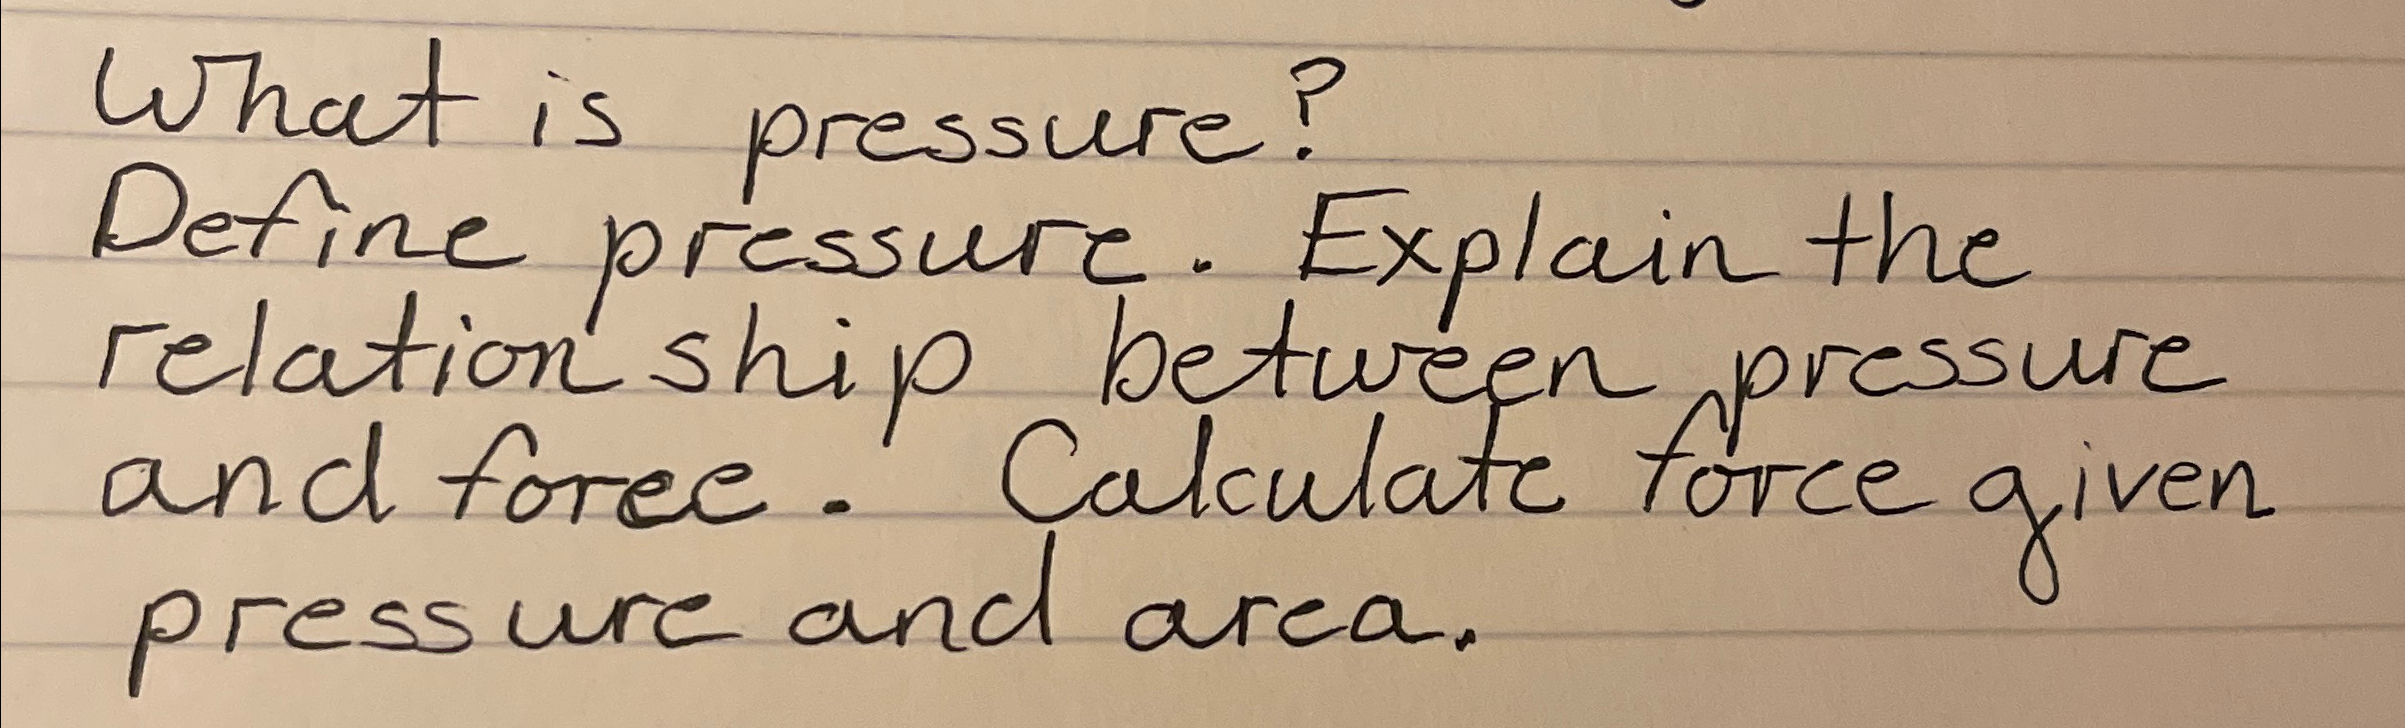 What is pressure?
Define pressure. Explain the
relationship between pressure
and force. Calculate force given
pressure and area.